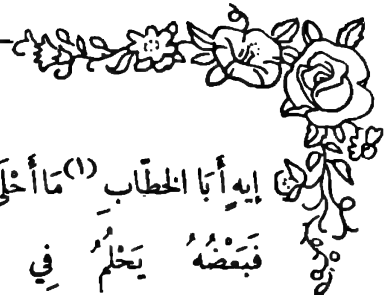 إيهِ أَبَا الخَطَّابِ (١) مَا أَحْلَى
فَبَعْضُهُ يَحْلُمُ فِي